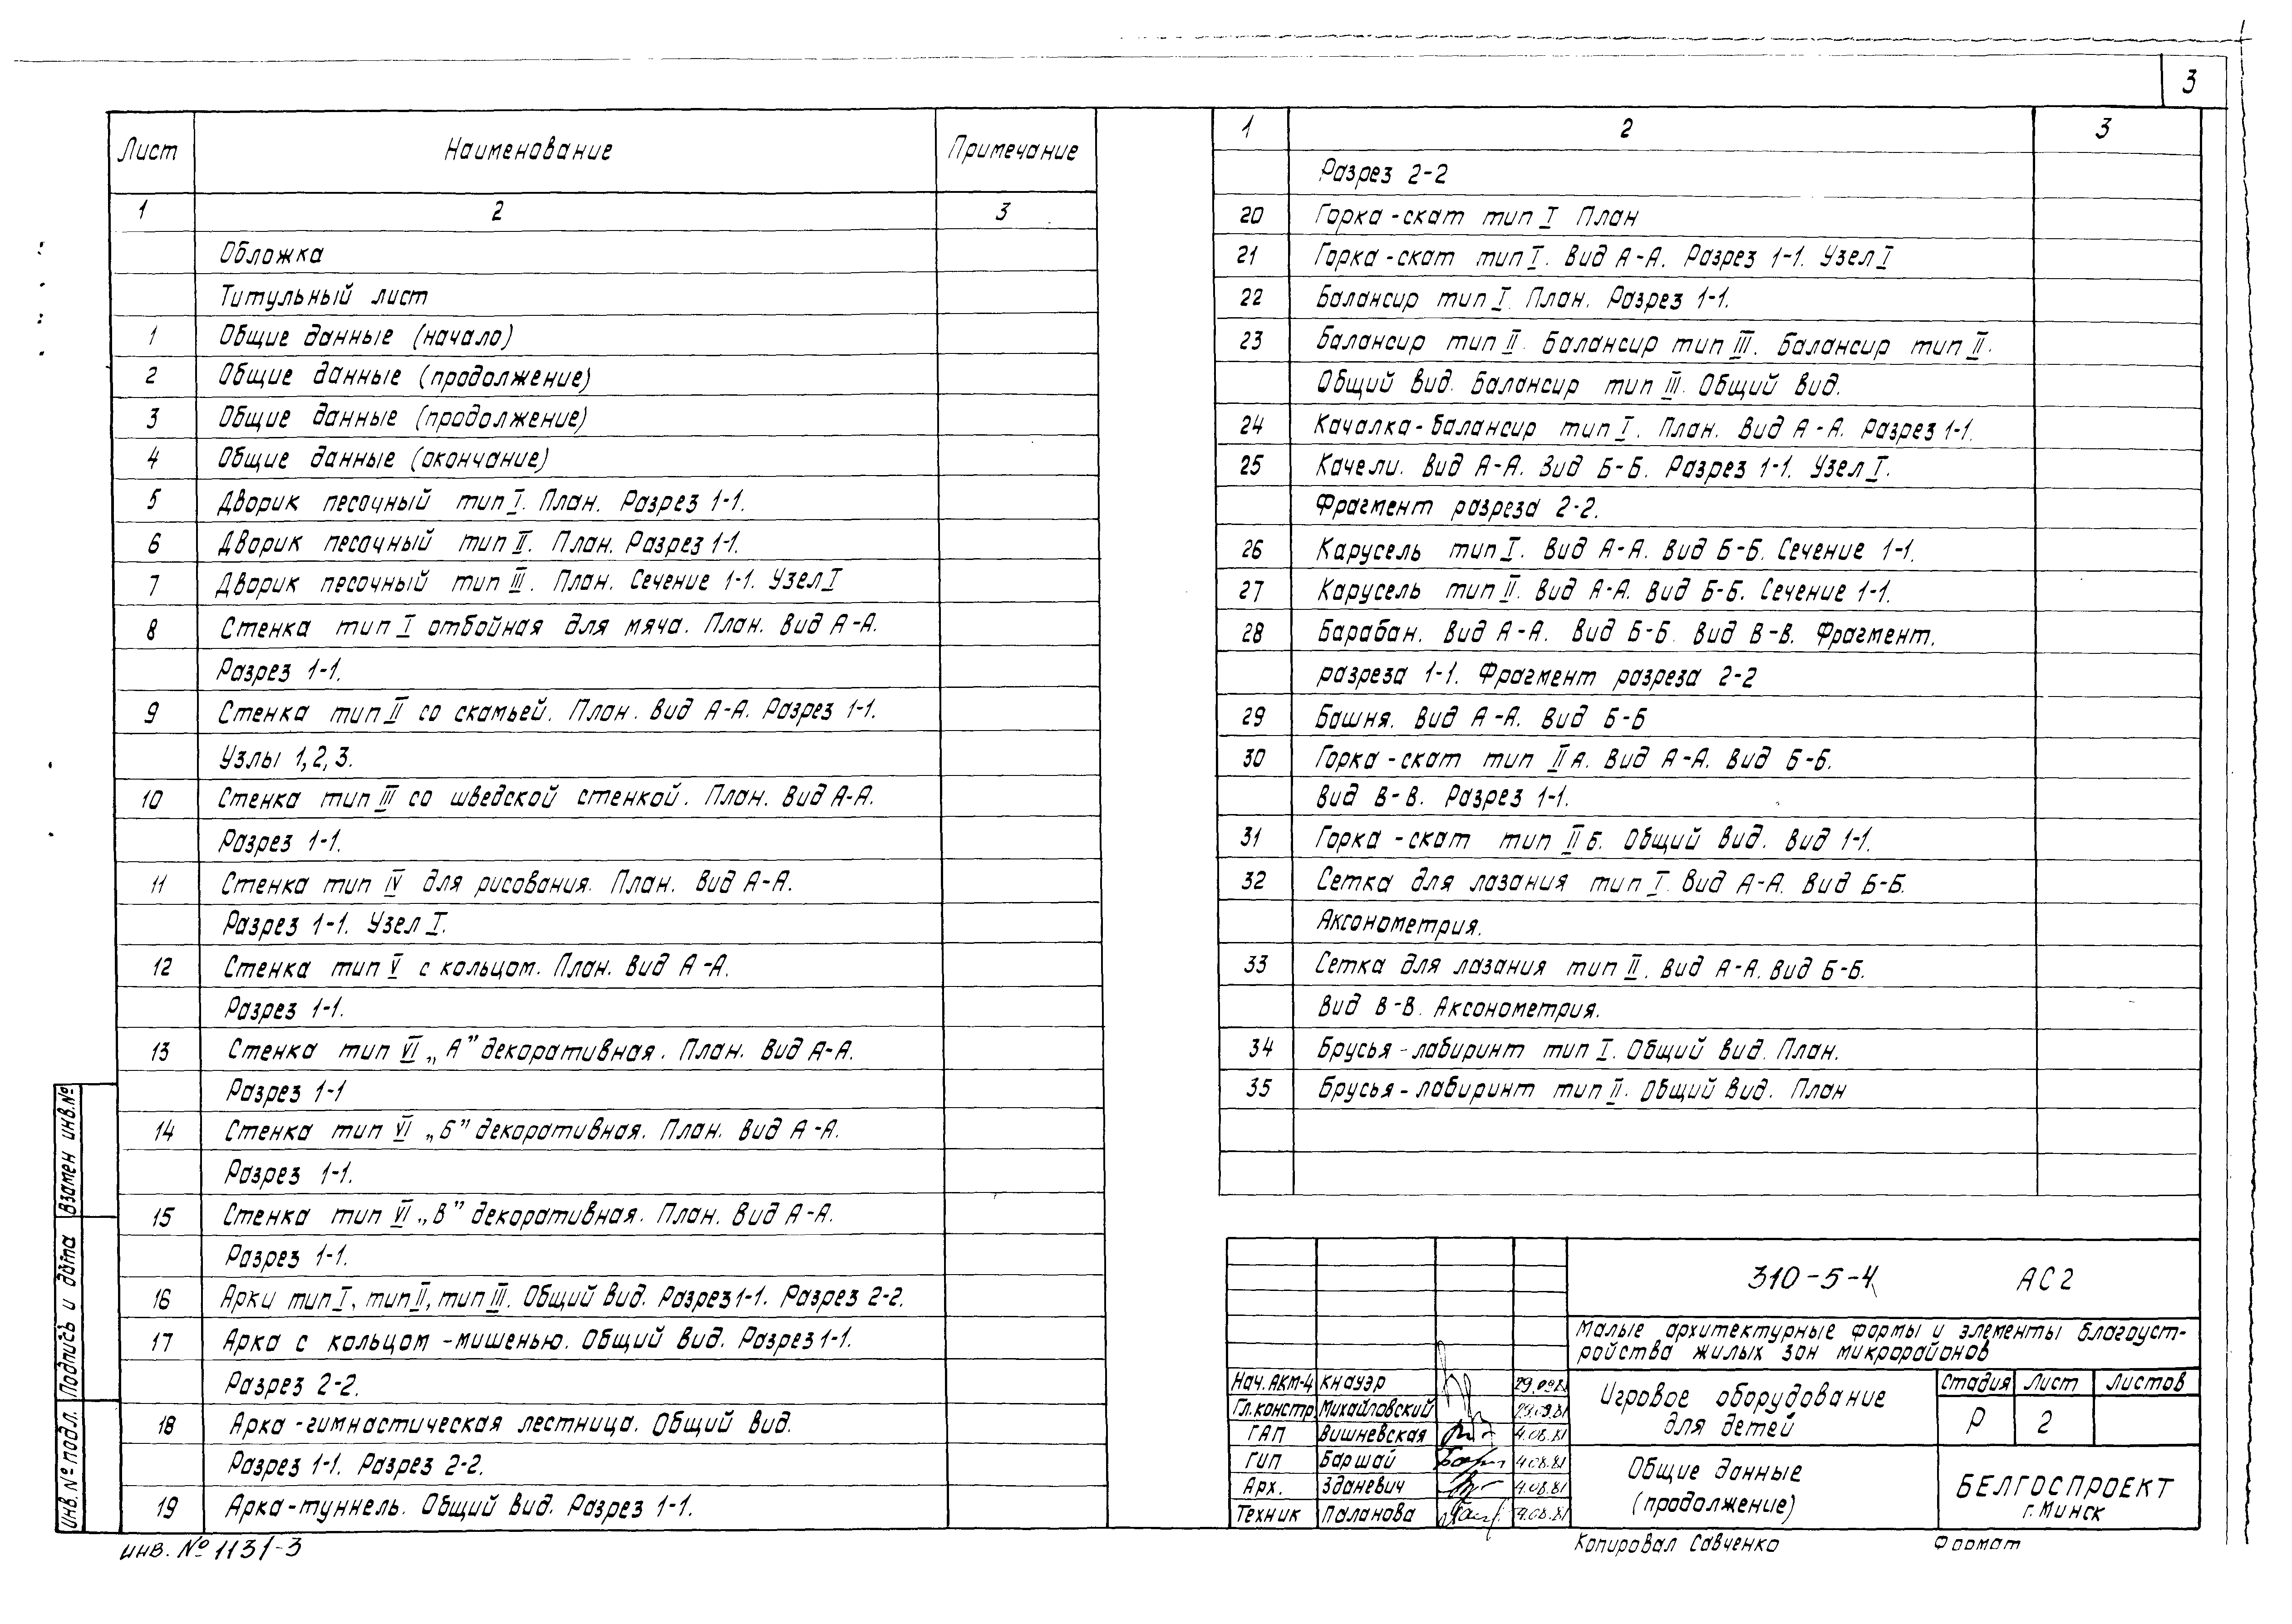 3
Лист Наименование Примечание
1 2 3
Обложка
Титульный лист
1 Общие данные (начало)
2 Общие данные (продолжение)
3 Общие данные (продолжение)
4 Общие данные (окончание)
5 Дворик песочный тип I. План. Разрез 1-1.
6 Дворик песочный тип II. План. Разрез 1-1.
7 Дворик песочный тип III. План. Сечение 1-1. Узел I
8 Стенка тип I отбойная для мяча. План. Вид А-А.
Разрез 1-1.
9 Стенка тип II со скамьей. План. Вид А-А. Разрез 1-1.
Узлы 1, 2, 3.
10 Стенка тип III со шведской стенкой. План. Вид А-А.
Разрез 1-1.
11 Стенка тип IV для рисования. План. Вид А-А.
Разрез 1-1. Узел I.
12 Стенка тип V с кольцом. План. Вид А-А.
Разрез 1-1.
13 Стенка тип VI „А” декоративная. План. Вид А-А.
Разрез 1-1
14 Стенка тип VI „Б” декоративная. План. Вид А-А.
Разрез 1-1.
15 Стенка тип VI „В” декоративная. План. Вид А-А.
Разрез 1-1.
16 Арки тип I, тип II, тип III. Общий вид. Разрез 1-1. Разрез 2-2.
17 Арка с кольцом-мишенью. Общий вид. Разрез 1-1.
Разрез 2-2.
18 Арка-гимнастическая лестница. Общий вид.
Разрез 1-1. Разрез 2-2.
19 Арка-туннель. Общий вид. Разрез 1-1.
1 2 3
Разрез 2-2
20 Горка-скат тип I План
21 Горка-скат тип I. Вид А-А. Разрез 1-1. Узел I
22 Балансир тип I. План. Разрез 1-1.
23 Балансир тип II. Балансир тип III. Балансир тип II.
Общий вид. Балансир тип III. Общий вид.
24 Качалка-балансир тип I. План. Вид А-А. Разрез 1-1.
25 Качели. Вид А-А. Вид Б-Б. Разрез 1-1. Узел I.
Фрагмент разреза 2-2.
26 Карусель тип I. Вид А-А. Вид Б-Б. Сечение 1-1.
27 Карусель тип II. Вид А-А. Вид Б-Б. Сечение 1-1.
28 Барабан. Вид А-А. Вид Б-Б. Вид В-В. Фрагмент.
разреза 1-1. Фрагмент разреза 2-2
29 Башня. Вид А-А. Вид Б-Б
30 Горка-скат тип II А. Вид А-А. Вид Б-Б.
Вид В-В. Разрез 1-1.
31 Горка-скат тип II Б. Общий вид. Вид 1-1.
32 Сетка для лазания тип I. Вид А-А. Вид Б-Б.
Аксонометрия.
33 Сетка для лазания тип II. Вид А-А. Вид Б-Б.
Вид В-В. Аксонометрия.
34 Брусья-лабиринт тип I. Общий вид. План.
35 Брусья-лабиринт тип II. Общий вид. План
310-5-4 АС2
Малые архитектурные формы и элементы благоуст-
ройства жилых зон микрорайонов
Нач. АКМ-4 Кнауэр
Гл. констр. Михайловский
ГАП Вишневская 4.08.81
ГИП Баршай 4.08.81
Арх. Зданевич 4.08.81
Техник Паланова 4.08.81
Игровое оборудование
для детей
Стадия Лист Листов
Р 2
Общие данные
(продолжение)
БЕЛГОСПРОЕКТ
г. Минск
Взамен инв. №
Подпись и дата
Инв. № подл.
инв. № 1131-3
Копировал Савченко Формат